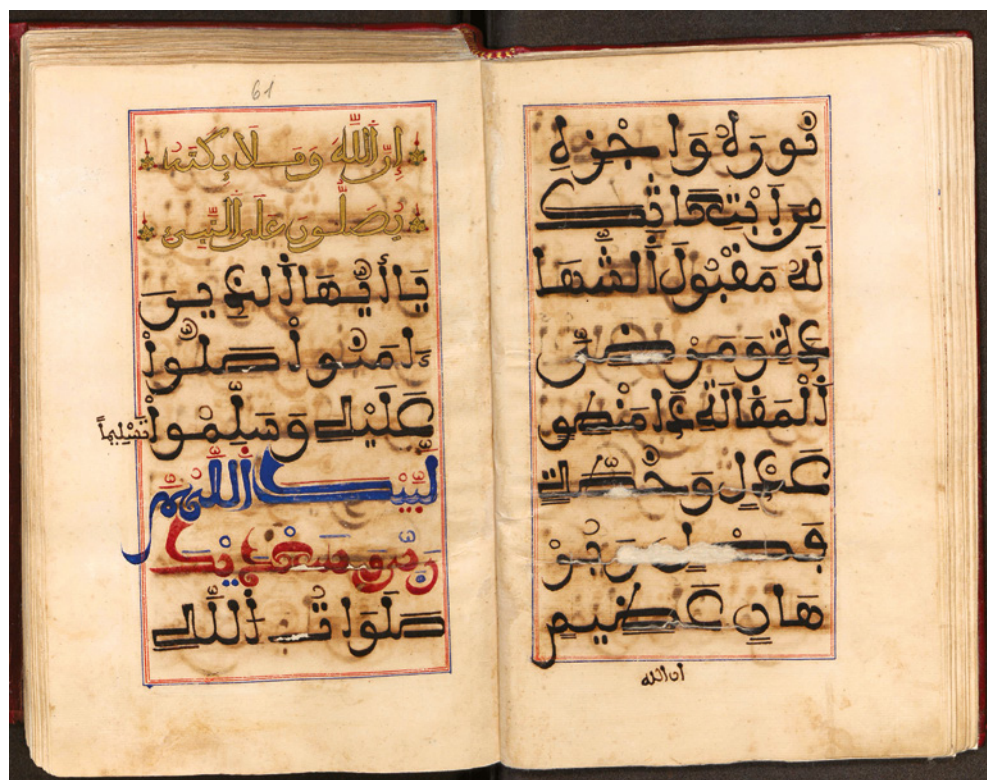 نُورَهُ وَاجْزِهِ
مِنِ ابْتِعَاثِكَ
لَهُ مَقْبُولَ الشَّهَا
دَةِ وَمَرْضِيَّ
الْمَقَالَةِ ذَا مَنْطِقٍ
عَدْلٍ وَخُطَّةٍ
فَصْلٍ وَبُرْ
هَانٍ عَظِيمٍ
ان الله
61
إِنَّ اللَّهَ وَمَلَائِكَتَهُ
يُصَلُّونَ عَلَى النَّبِيِّ
يَا أَيُّهَا الَّذِينَ
ءَامَنُوا صَلُّوا
عَلَيْهِ وَسَلِّمُوا تَسْلِيماً
لَبَّيْكَ اللَّهُمَّ
رَبِّي وَسَعْدَيْكَ
صَلَوَاتُ اللَّهِ